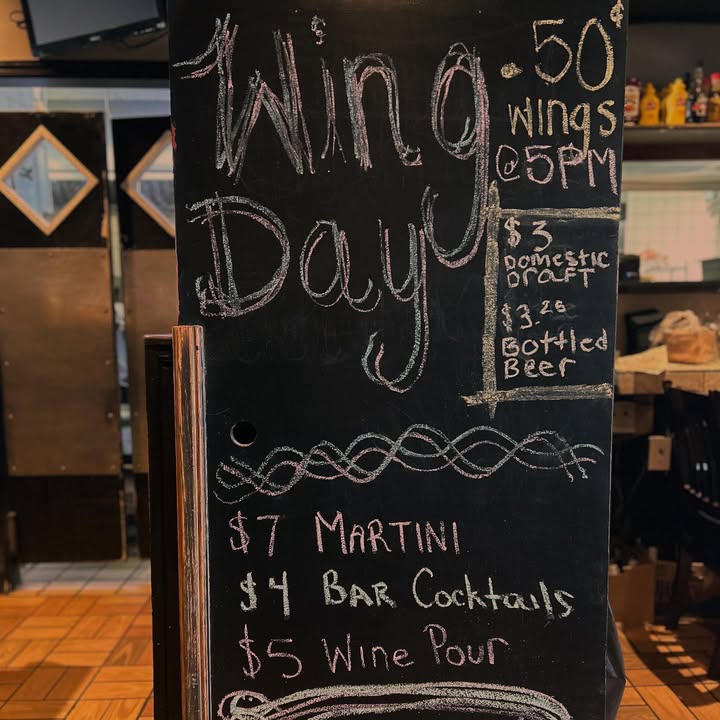 Wing
Day
.50¢
WINGS
@5PM
$3
DOMESTIC
DRAFT
$3.25
Bottled
Beer
$7 MARTINI
$4 BAR Cocktails
$5 Wine Pour